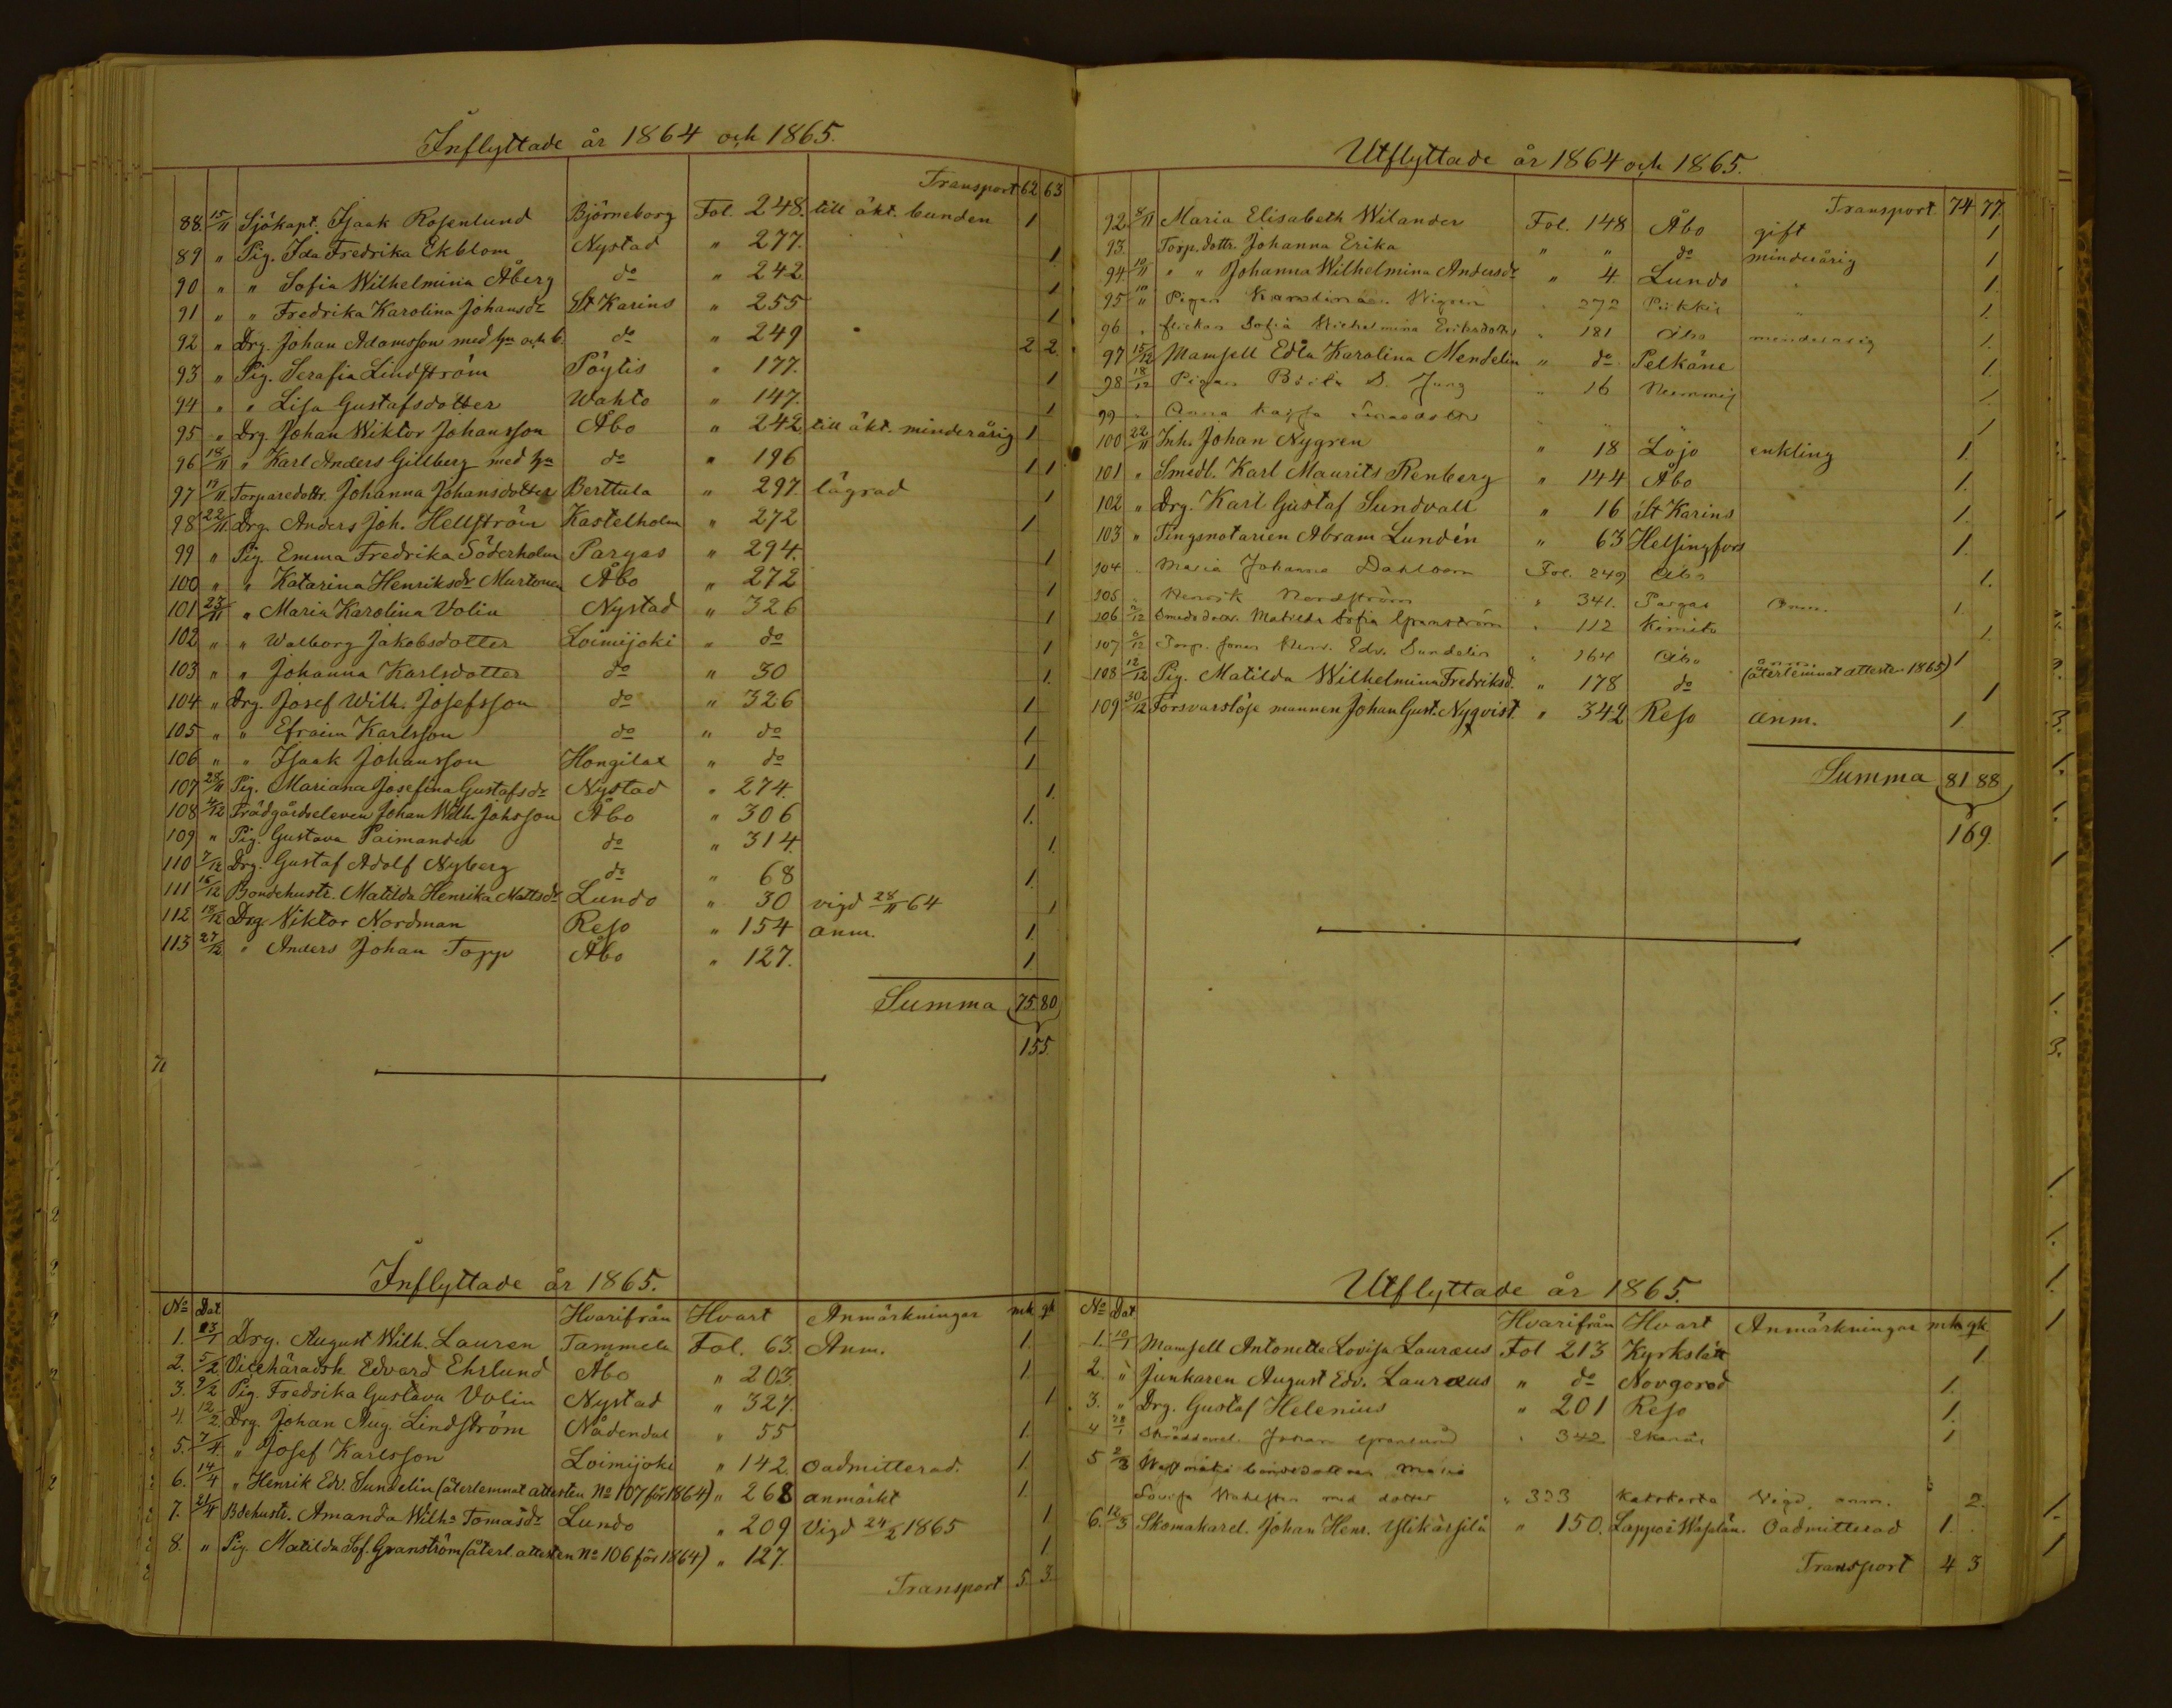 Inflyttade år 1864 och 1865.
Transport 62 63
88. 15/11 Sjökapt. Isaak Rosenlund Björneborg Fol. 248. till äkt. bunden 1
89 " Pig. Ida Fredrika Ekblom Nystad " 277. 1
90 " " Sofia Wilhelmina Åberg do " 242 1
91 " " Fredrika Karolina Johansdr St Karins " 255 1
92 " Drg. Johan Adamsson med hu och b. do " 249 2 2
93 " Pig. Serafia Lindström Pöytis " 177. 1
94 " " Lisa Gustafsdotter Wahto " 147. 1
95 " Drg. Johan Wiktor Johansson Åbo " 242 till äkt. minderårig 1
96 18/11 " Karl Anders Gillberg med hu do " 196 1 1
97 19/11 Torparedottr. Johanna Johansdotter Berttula " 297. lägrad 1
98 22/11 Drg. Anders Joh. Hellström Kastelholm " 272 1
99 " Pig. Emma Fredrika Söderholm Pargas " 294. 1
100 " " Katarina Henriksdr Murtonen Åbo " 272 1
101 23/11 " Maria Karolina Volin Nystad " 326 1
102 " " Walborg Jakobsdotter Loimijoki " do 1
103 " " Johanna Karlsdotter do " 30 1.
104 " Drg. Josef Wilh. Josefsson do " 326 1
105 " " Efraim Karlsson do " do 1
106 " " Isaak Johansson Hongilax " do 1
107 28/11 Pig. Mariana Josefina Gustafsdr Nystad " 274. 1.
108 2/12 Trädgårdseleven Johan Wilh. Johsson Åbo " 306 1.
109 " Pig. Gustava Paimander do " 314. 1.
110 7/12 Drg. Gustaf Adolf Nyberg do " 68 1.
111 16/12 Bondehustr. Matilda Henrika Mattsdr Lundo " 30 vigd 28/11 64 1
112 18/12 Drg. Viktor Nordman Reso " 154 anm. 1
113 27/12 " Anders Johan Topp Åbo " 127. 1
Summa 75. 80
155.
Inflyttade år 1865.
No Dat Hvarifrån Hvart Anmärkningar mk qk
1. 23/1 Drg. August Wilh. Lauren Tammela Fol. 63. Anm. 1.
2. 5/2 Vicehäradsh Edvard Ehrlund Åbo " 203. 1.
3. 9/2 Pig. Fredrika Gustava Volin Nystad " 327. 1
4. 12/2 Drg. Johan Aug. Lindström Nådendal " 55 1.
5. 7/4 " Josef Karlsson Loimijoki " 142. oadmitterad. 1.
6. 14/4 " Henrik Edv. Sundelin (återlemnat attesten No 107 för 1864) " 268 anmärkt 1
7. 21/4 Bdehustr. Amanda Wilha Tomasdr Lundo " 209 Vigd 24/2 1865 1
8. " Pig. Matilda Sof. Granström (återl. attesten No 106 för 1864) " 127. 1
Transport 5. 3.
Utflyttade år 1864 och 1865.
Transport 74 77
92. 8/11 Maria Elisabeth Wilander Fol. 148 Åbo gift 1
93. Torp. dottr. Johanna Erika " " do minderårig 1
94 10/11 " " Johanna Wilhelmina Andersdr " 4. Lundo " 1.
95 Pigan Karolina Wigren " 272 Piikkis 1.
96 " flickan Sofia Wilhelmina Eriksdotter " 181 Åbo minderårig 1.
97 15/12 Mamsell Edla Karolina Mendelin " do Pelkäne 1.
98 18/12 Pigan S. Jung " 16 1
99 " Anna Kajsa 1
100 22/11 Inh. Johan Nygren " 18 Lojo enkling 1
101 " Smedl. Karl Maurits Renberg " 144 Åbo 1.
102 " Drg. Karl Gustaf Sundvall " 16 St Karins 1.
103 " Tingsnotarien Abram Lundén " 63 Helsingfors 1.
104 " Maria Johanna Dahlbom Fol. 249 Åbo 1.
105 " Henrik Nordström " 341. Pargas Anm. 1.
106 Matilda Sofia Granström " 112 Kimito 1.
107 Torp. sonen Henr. Edv. Sundelin " 164 Åbo anm. 1
108 12/12 Pig. Matilda Wilhelmina Fredriksd. " 178 do (återlemnat attesten 1865) 1
109 30/12 Försvarslöse mannen Johan Gust. Nyqvist. " 342 Reso anm. 1
Summa 81 88
169.
Utflyttade år 1865.
No Dat Hvarifrån Hvart Anmärkningar mk qk
1. 10/1 Mamsell Antonette Lovisa Lauræus Fol 213 Kyrkslätt 1
2. " Junkaren August Edv. Lauræus " do Novgorod 1.
3. " Drg. Gustaf Helenius " 201 Reso 1.
4 28/1 Johan Granlund " 342 Ekenäs 1
5 2/3 Maria
Lovisa med dotter " 333 Vigd, anm. 2.
6. 12/3 Skomakarel. Johan Henr. Ylikärsilä " 150. Lappo i Wasa län. Oadmitterad 1.
Transport 4 3